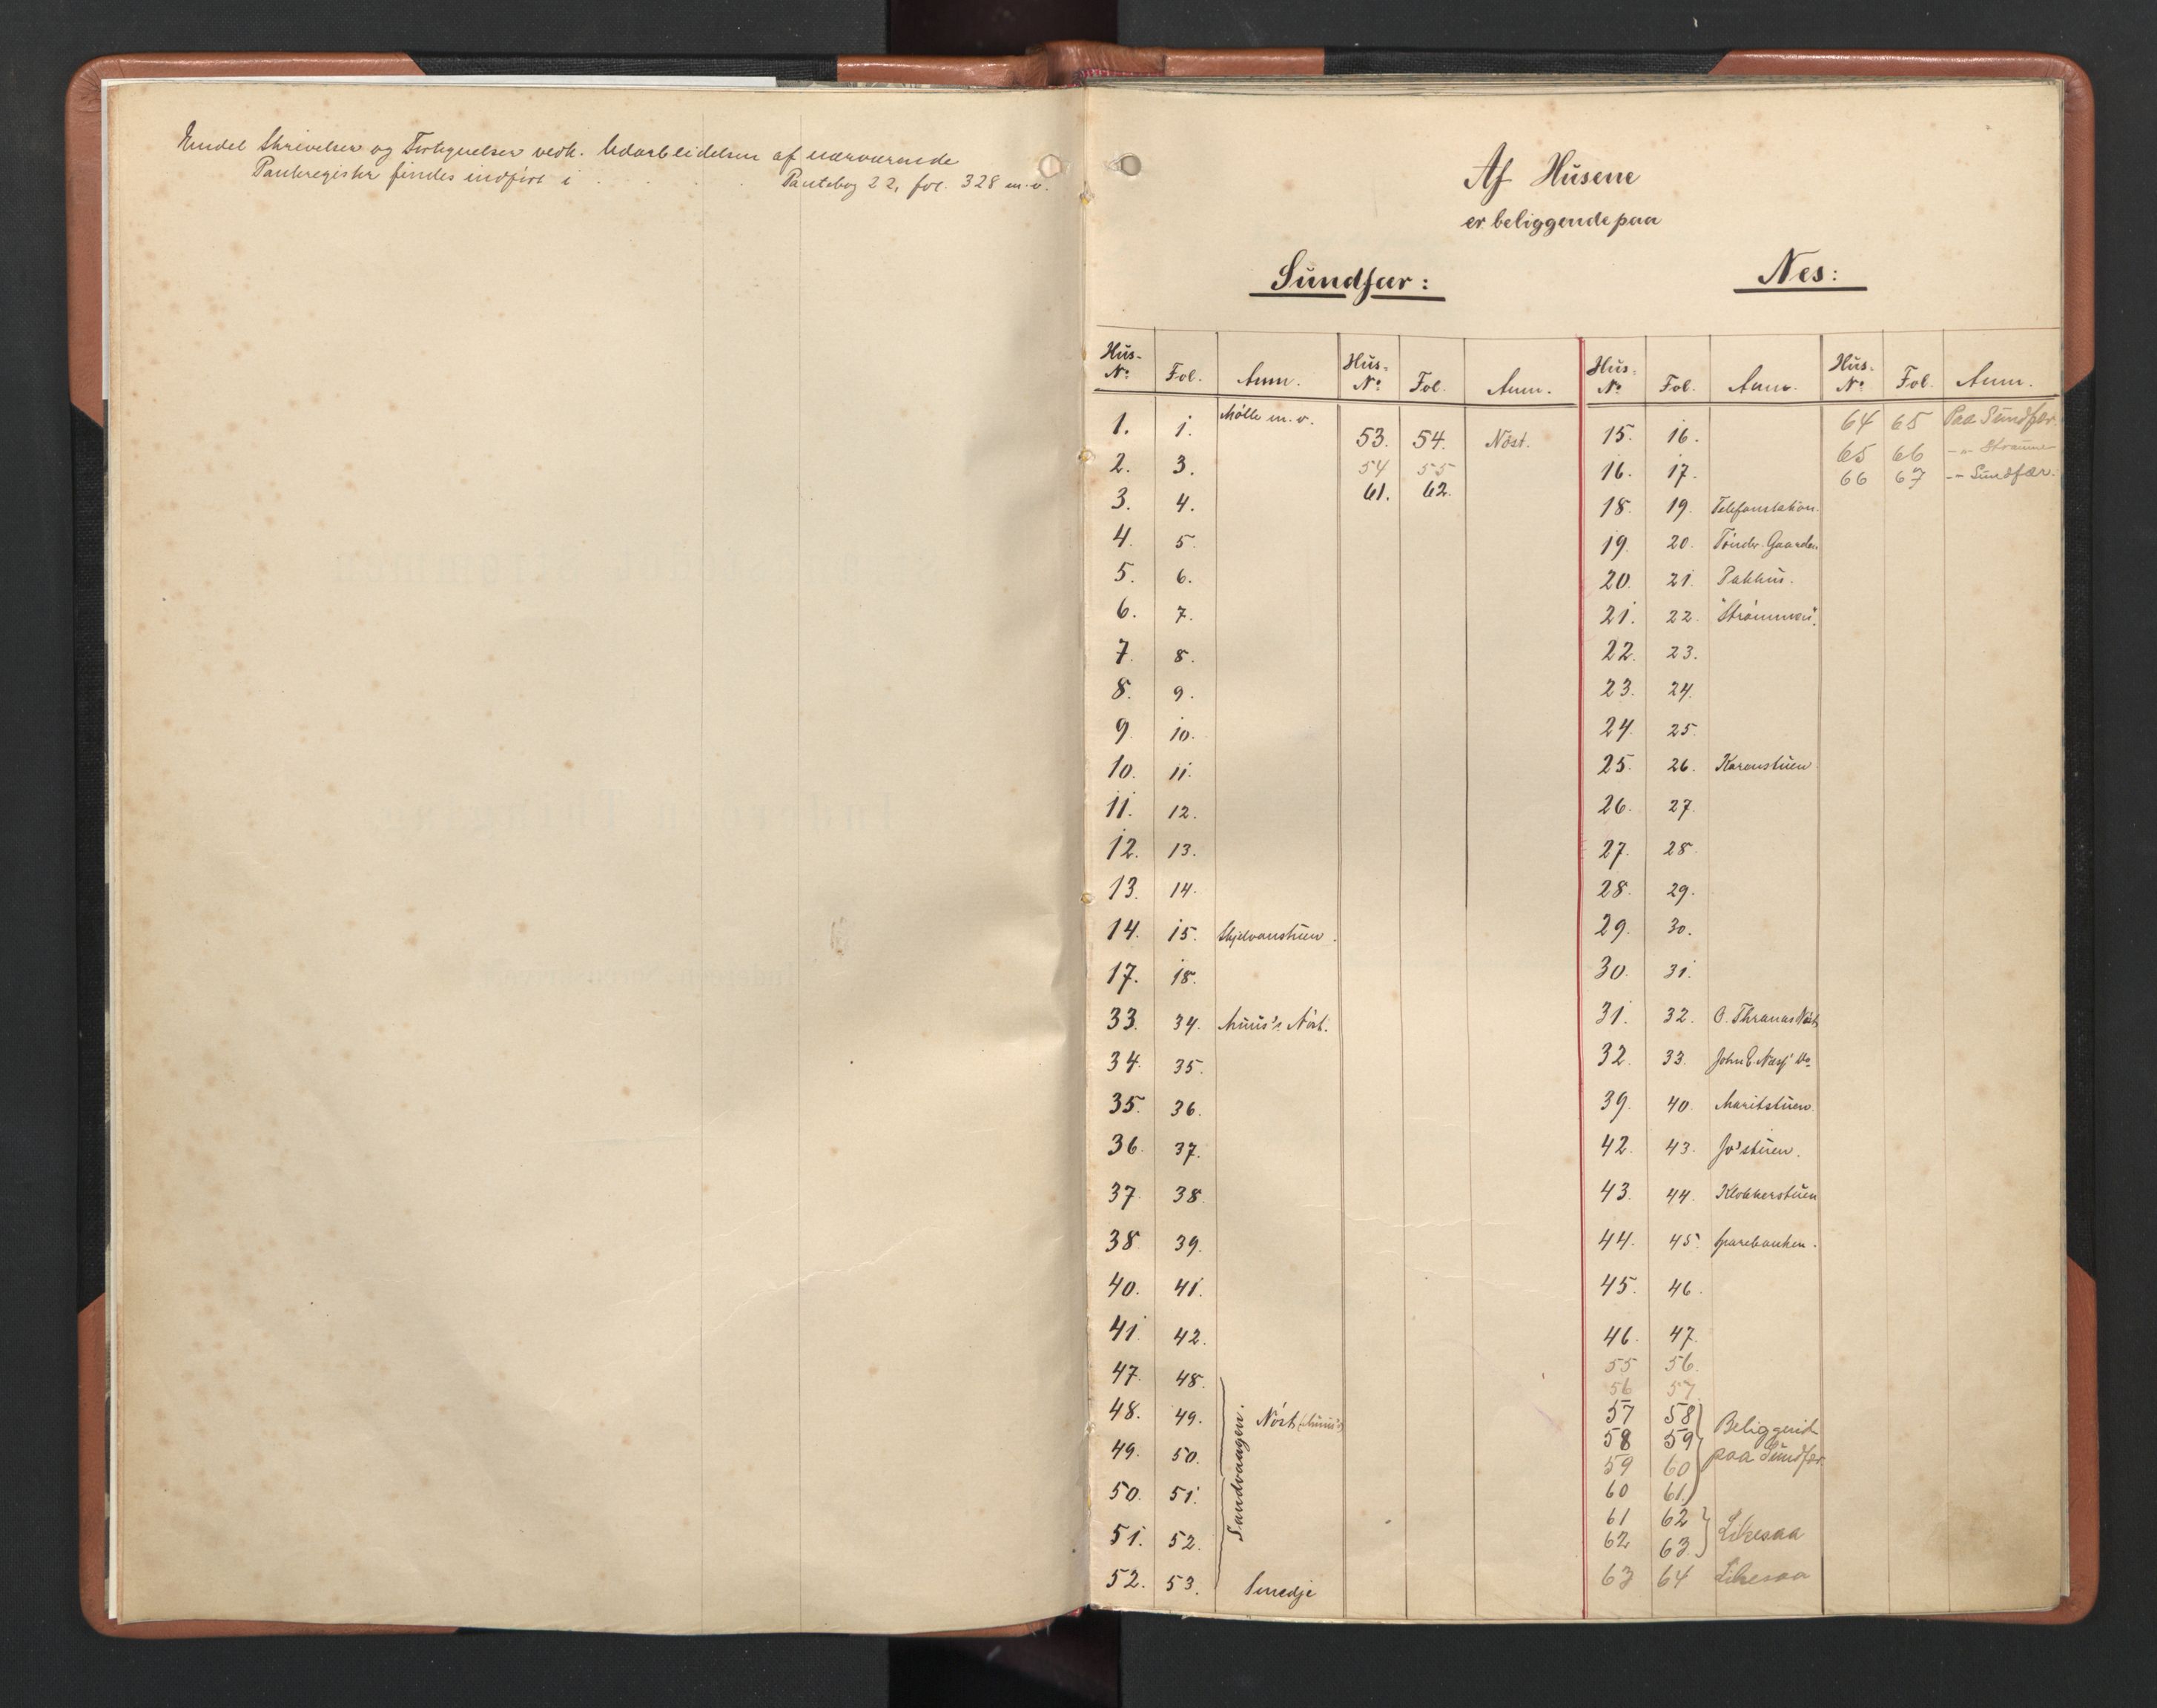 Endel Skrivelser og Fortegnelser vedk. Udarbeidelsen af nærværende
Panteregister findes indført i . . . Pantebog 22, fol. 328 m. v.
Af Husene
er beliggende paa
Sundfær:
Hus- No Fol. Anm. Hus- No Fol. Anm.
1. 1. Mølle m. v.
2. 3.
3. 4.
4. 5.
5. 6.
6. 7.
7. 8.
8. 9.
9. 10.
10. 11.
11. 12.
12. 13.
13. 14.
14. 15. Skjelvanstuen.
17. 18.
33. 34. Muus's Nöst.
34. 35.
35. 36.
36. 37.
37. 38.
38. 39.
40. 41.
41. 42.
47. 48.
48. 49. Nöst (Muus's)
49. 50.
50. 51.
51. 52.
Sandvaagen.
52. 53. Smedje
53. 54. Nöst.
54 55
61. 62.
Nes:
Hus- No Fol. Anm. Hus- No Fol. Anm.
15. 16.
16. 17.
18. 19. Telefonstation.
19. 20. Tönder-Gaarden
20. 21. Pakhus.
21. 22. "Strömmen".
22. 23.
23. 24.
24. 25.
25. 26. Karenstuen
26. 27.
27. 28
28. 29.
29. 30.
30. 31.
31. 32. O. Thranas Nöst
32. 33. John E. Næss' Do
39. 40. Maritstuen.
42. 43. Jo'stuen.
43. 44. Klokkerstuen
44. 45. Sparebanken.
45. 46.
46. 47.
55 56.
56 57.
57 58
58 59
59 60
60 61.
Beliggend
paa Sundfær
61 62
62 63.
Likesaa
63 64 Likesaa
64 65 Paa Sundfær.
65 66 -"- Straumen
66 67 -"- Sundfær.